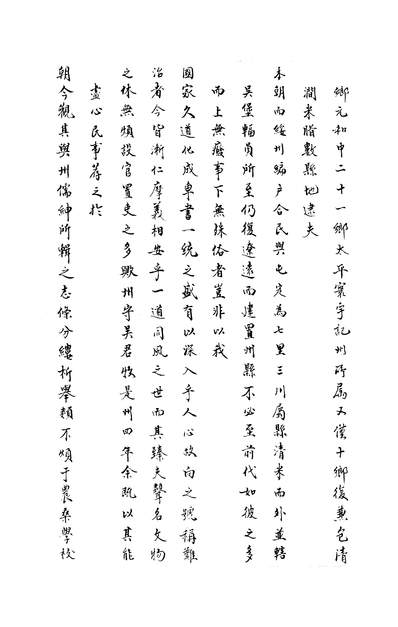 鄉元和中二十一鄉太平寰宇記州所屬又僅十鄉復兼包清
澗米脂數縣地逮夫
本朝而綏州編戶合民與屯定為七里三川屬縣清米而外並轄
吳堡輻員所至仍復遼遠而建置州縣不必至前代如彼之多
而上無廢事下無殊俗者豈非以我
國家久道化成車書一統之盛有以深入乎人心故向之號稱難
治者今皆漸仁摩義相安乎一道同風之世而其臻夫聲名文物
之休無煩設官置吏之多歟州守吳君牧是州四年余既以其能
盡心民事薦之於
朝今觀其與州儒紳所輯之志條分縷析舉類不煩于農桑學校